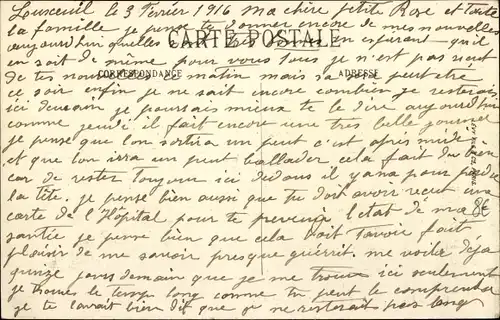 Luxeuil le 3 Fevrier 1916 ma chere petite Rose et toute
la famille je pense te donner encore de mes nouvelles
aujourd'hui quelles sont en esperant qu'il
CARTE POSTALE
en soit de même pour vous tous je n'est pas recut
CORRESPONDANCE
ADRESSE
de tes nouvelles matin mais sa peut etre
ce soir enfin je ne sait encore combien je resterais
ici demain je pourrais mieux te le dire aujourd'hui
comme jeudi il fait encore une tres belle journee
je pense que lon sortira un peut c'est apres midi
et que lon irra un peut ballader cela fait du bien
car de rester toujour ici dedans il yana pour perdre
la tête. je pense bien aussi que tu doit avoir recut une
carte de l'Hôpital pour te prevenir letat de ma
santée je pense bien que cela doit tavoir fait
plaisir de me savoir presque guérrit. me voila deja
quinze jours demain que je me trouve ici seulement
je trouve le temps long comme tu peut le comprendre
je te lavait bien dit que je ne resterait pas long